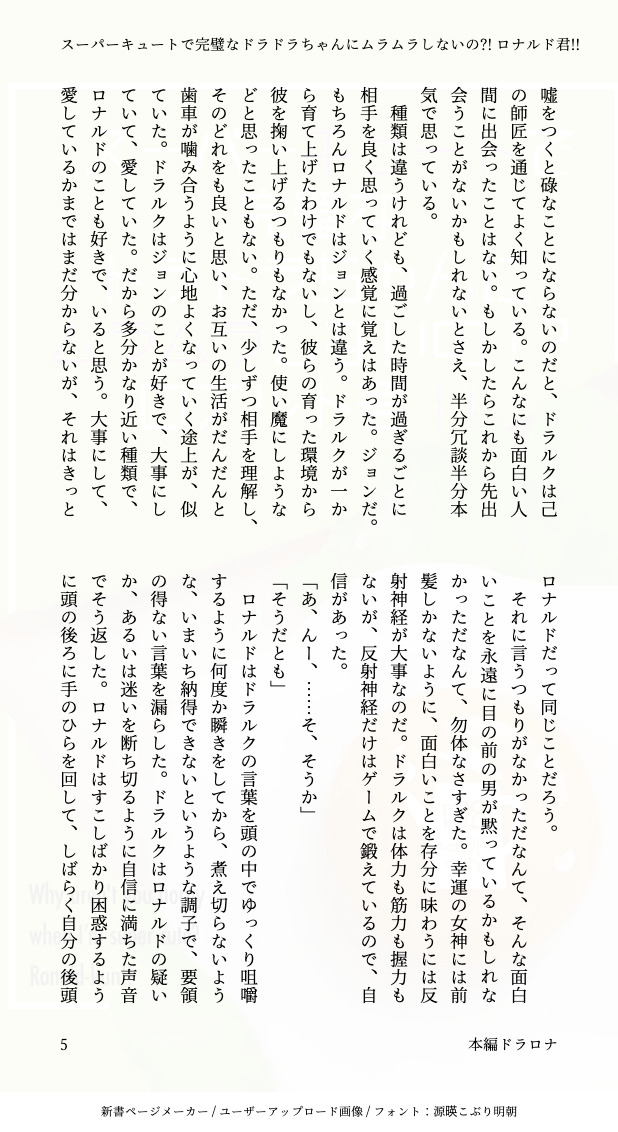 スーパーキュートで完璧なドラドラちゃんにムラムラしないの?! ロナルド君!!
嘘をつくと碌なことにならないのだと、ドラルクは己
の師匠を通じてよく知っている。こんなにも面白い人
間に出会ったことはない。もしかしたらこれから先出
会うことがないかもしれないとさえ、半分冗談半分本
気で思っている。
　種類は違うけれども、過ごした時間が過ぎるごとに
相手を良く思っていく感覚に覚えはあった。ジョンだ。
もちろんロナルドはジョンとは違う。ドラルクが一か
ら育て上げたわけでもないし、彼らの育った環境から
彼を掬い上げるつもりもなかった。使い魔にしような
どと思ったこともない。ただ、少しずつ相手を理解し、
そのどれをも良いと思い、お互いの生活がだんだんと
歯車が噛み合うように心地よくなっていく途上が、似
ていた。ドラルクはジョンのことが好きで、大事にし
ていて、愛していた。だから多分かなり近い種類で、
ロナルドのことも好きで、いると思う。大事にして、
愛しているかまではまだ分からないが、それはきっと
ロナルドだって同じことだろう。
　それに言うつもりがなかっただなんて、そんな面白
いことを永遠に目の前の男が黙っているかもしれな
かっただなんて、勿体なさすぎた。幸運の女神には前
髪しかないように、面白いことを存分に味わうには反
射神経が大事なのだ。ドラルクは体力も筋力も握力も
ないが、反射神経だけはゲームで鍛えているので、自
信があった。
「あ、んー、……そ、そうか」
「そうだとも」
　ロナルドはドラルクの言葉を頭の中でゆっくり咀嚼
するように何度か瞬きをしてから、煮え切らないよう
な、いまいち納得できないというような調子で、要領
の得ない言葉を漏らした。ドラルクはロナルドの疑い
か、あるいは迷いを断ち切るように自信に満ちた声音
でそう返した。ロナルドはすこしばかり困惑するよう
に頭の後ろに手のひらを回して、しばらく自分の後頭
5
本編ドラロナ
新書ページメーカー / ユーザーアップロード画像 / フォント：源暎こぶり明朝